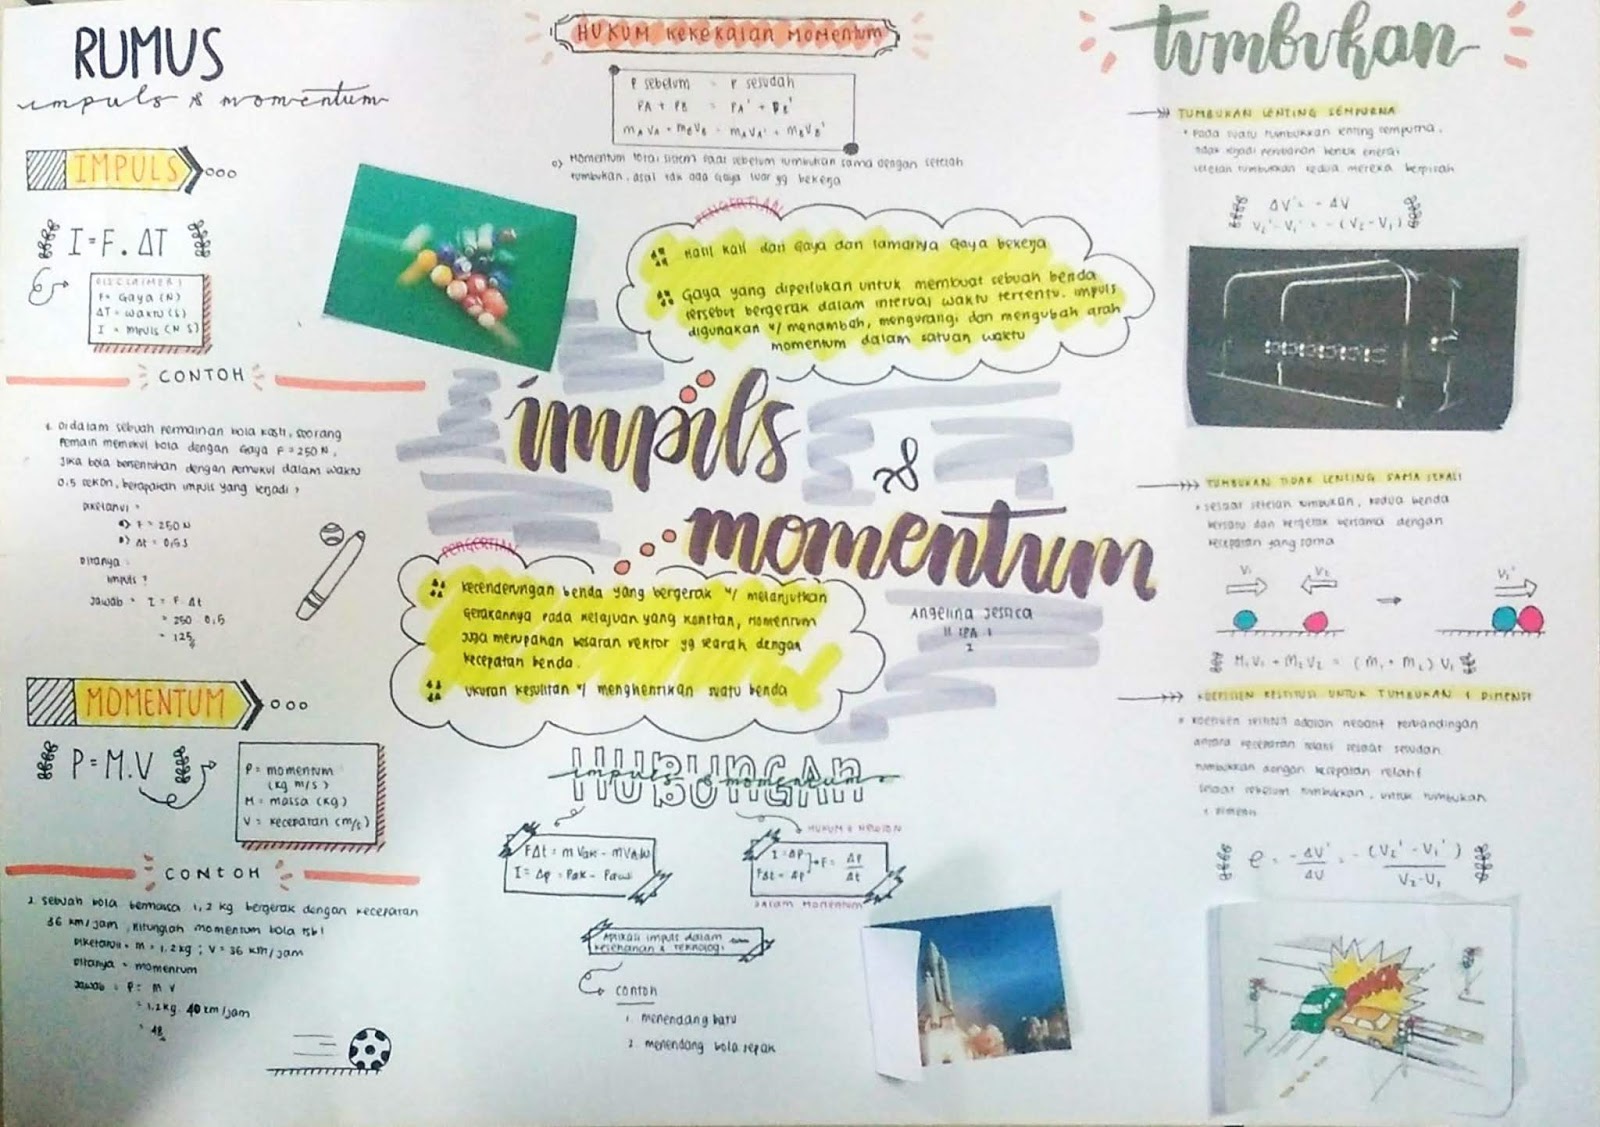 RUMUS
impuls & momentum
IMPULS
I = F. ΔT
DISCLAIMER!
F = Gaya (N)
ΔT = waktu (s)
I = impuls (N S)
CONTOH
1. Didalam sebuah permainan bola kasti, seorang
pemain memukul bola dengan Gaya F = 250 N,
Jika bola bersentuhan dengan pemukul dalam waktu
0,5 sekon, berapakah impuls yang terjadi ?
Diketahui =
a) F = 250 N
b) Δt = 0,5 s
Ditanya :
impuls ?
Jawab = I = F. Δt
= 250 . 0,5
= 125
MOMENTUM
P = M.V
P = momentum
(kg m/s)
M = massa (kg)
V = kecepatan (m/s)
CONTOH
2. Sebuah bola bermassa 1,2 kg bergerak dengan kecepatan
36 km/jam, hitunglah momentum bola tsb!
Diketahui = m = 1.2 kg ; V = 36 km/jam
Ditanya = momentum
Jawab : P = m v
= 1.2 kg. 40 km/jam
= 48
HUKUM KEKEKALAN MOMENTUM
P sebelum = P sesudah
PA + PB = PA' + PB'
mAVA + mBVB = mAVA' + mBVB'
Momentum total sistem saat sebelum tumbukan sama dengan setelah
tumbukan, asal tak ada gaya luar yg bekerja
PENGERTIAN
Hasil kali dari Gaya dan lamanya Gaya bekerja
Gaya yang diperlukan untuk membuat sebuah benda
tersebut bergerak dalam interval waktu tertentu. impuls
digunakan u/ menambah, mengurangi dan mengubah arah
momentum dalam satuan waktu
impuls
&
momentum
Angelina Jessica
11 IPA 1
2
PENGERTIAN
Kecenderungan benda yang bergerak u/ melanjutkan
Gerakannya pada kelajuan yang konstan, Momentum
juga merupakan besaran vektor yg searah dengan
kecepatan benda.
ukuran kesulitan u/ menghentikan suatu benda
HUBUNGAN
impuls & momentum
FΔt = m Vak - m Vaw
I = Δp = Pak - Paw
I = ΔP
FΔt = ΔP
F = ΔP/Δt
DALAM MOMENTUM
Aplikasi impuls dalam
& teknologi
contoh
1. menendang batu
2. menendang bola sepak
tumbukan
TUMBUKAN LENTING SEMPURNA
Pada suatu tumbukkan lenting sempurna,
tidak terjadi perubahan bentuk energi
setelah tumbukkan kedua mereka berpisah
ΔV' = - ΔV
V2' - V1' = - (V2 - V1)
TUMBUKAN TIDAK LENTING SAMA SEKALI
sesaat setelah tumbukan, kedua benda
bersatu dan bergerak bersama dengan
kecepatan yang sama
V1 V2 V1'
M1 V1 + M2 V2 = (M1 + M2) V1
KOEFISIEN RESTITUSI UNTUK TUMBUKAN 1 DIMENSI
adalah negatif perbandingan
antara kecepatan relatif sesaat sesudah
tumbukkan dengan kecepatan relatif
sesaat sebelum tumbukkan, untuk tumbukan
1 dimensi
e = -ΔV'/ΔV = -(V2' - V1')/V2 - V1